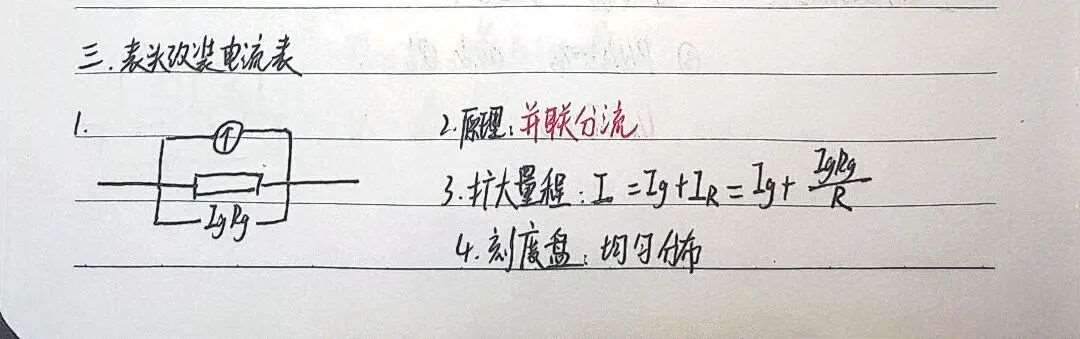 三.表头改装电流表
1.
IgRg
2.原理:并联分流
3.扩大量程:I = Ig + IR = Ig + IgRg/R
4.刻度盘:均匀分布